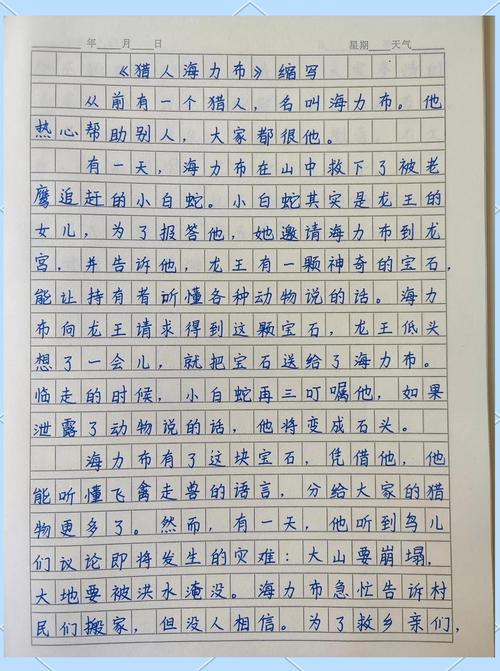 年 月 日 星期 天气
《猎人海力布》缩写
从前有一个猎人，名叫海力布。他
热心帮助别人，大家都很他。
有一天，海力布在山中救下了被老
鹰追赶的小白蛇。小白蛇其实是龙王的
女儿，为了报答他，她邀请海力布到龙
宫，并告诉他，龙王有一颗神奇的宝石，
能让持有者听懂各种动物说的话。海力
布向龙王请求得到这颗宝石，龙王低头
想了一会儿，就把宝石送给了海力布。
临走的时候，小白蛇再三叮嘱他，如果
泄露了动物说的话，他将变成石头。
海力布有了这块宝石，凭借他，他
能听懂飞禽走兽的语言，分给大家的猎
物更多了。然而，有一天，他听到鸟儿
们议论即将发生的灾难：大山要崩塌，
大地要被洪水淹没。海力布急忙告诉村
民们搬家，但没人相信。为了救乡亲们，